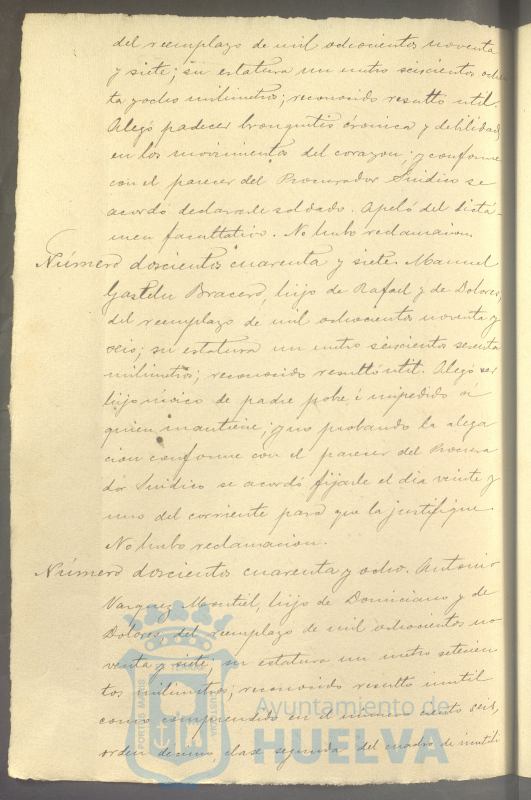 del reemplazo de mil ochocientos noventa
y siete; su estatura un metro seiscientos ochen
ta y ocho milimetros; reconocido resultó util.
Alegó padecer bronquitis crónica y debilidad
en los movimientos del corazon; y conforme
con el parecer del Procurador Sindico se
acordó declararle soldado. Apeló del dictá-
men facultativo. No hubo reclamacion.
Número doscientos cuarenta y siete. Manuel
Gastelu Bracero, hijo de Rafael y de Dolores,
del reemplazo de mil ochocientos noventa y
seis; su estatura un metro seiscientos sesenta
milimetros; reconocido resultó util. Alegó ser
hijo unico de padre pobre é impedido á
quien mantiene; y no probando la alega
cion conforme con el parecer del Procura
dor Sindico se acordó fijarle el dia veinte y
uno del corriente para que la justifique.
No hubo reclamacion.
Número doscientos cuarenta y ocho. Antonio
Vazquez Montiel, hijo de Domiciano y de
Dolores, del reemplazo de mil ochocientos no
venta y siete; su estatura un metro setecien
tos milimetros; reconocido resultó inutil
como comprendido en el número ciento seis,
orden decimo, clase segunda del cuadro de inutili
Ayuntamiento de
HUELVA